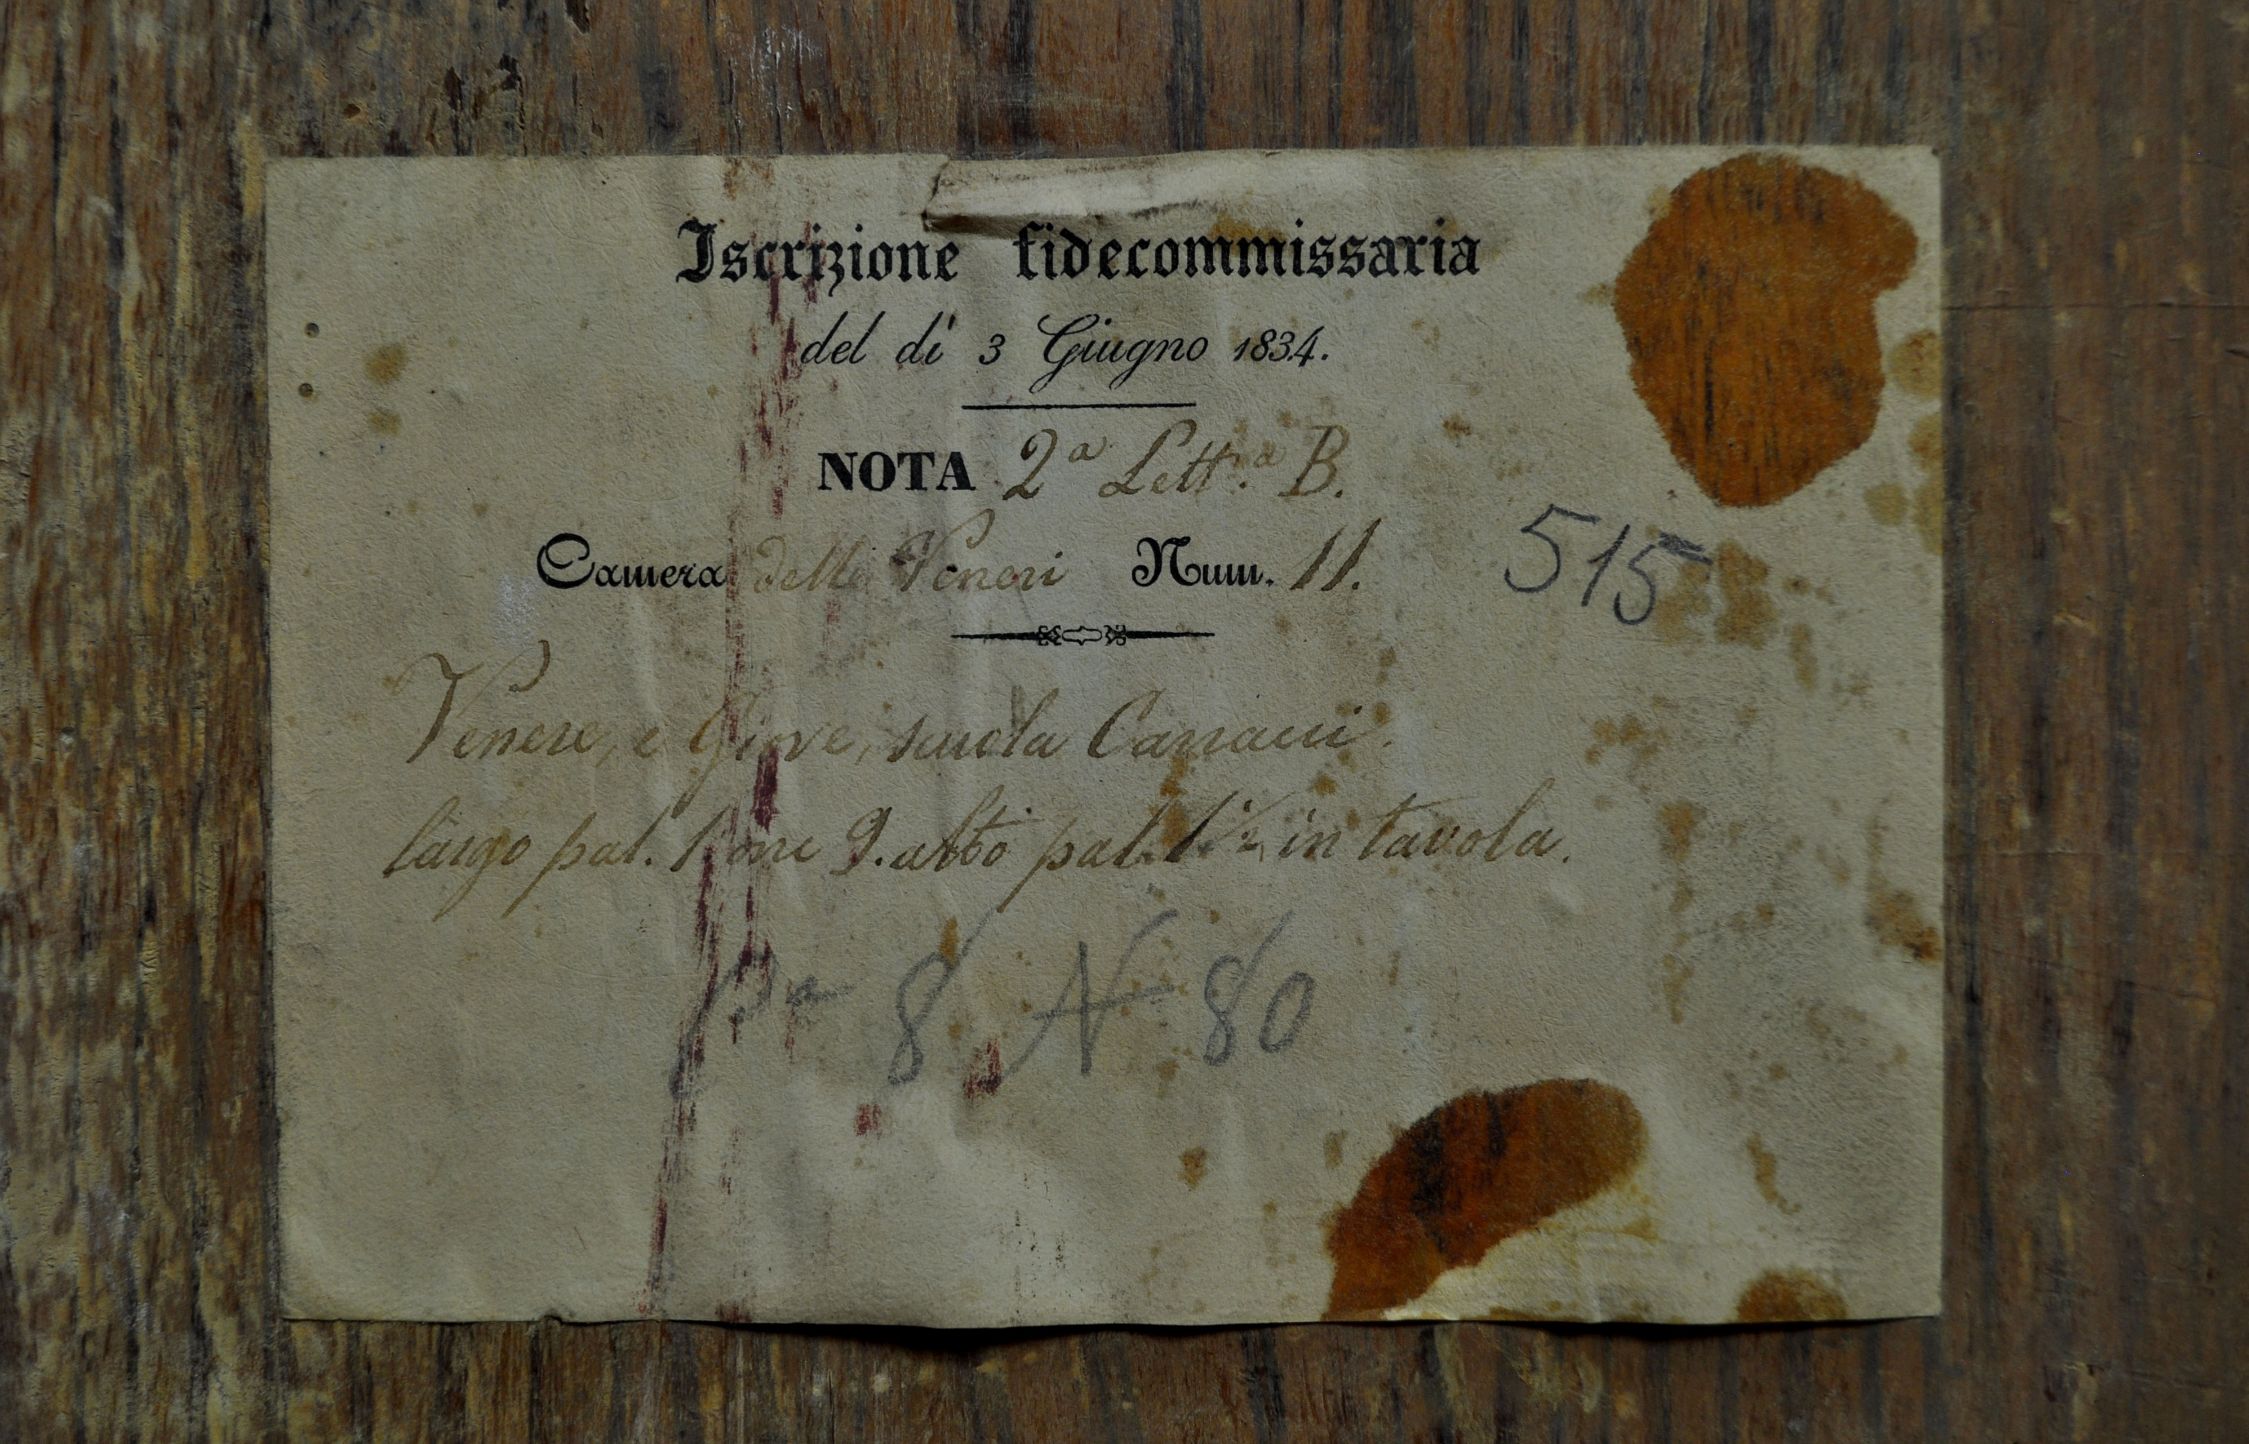 Iscrizione fidecommissaria
del dì 3 Giugno 1834.
NOTA 2ª Lettª. B.
Camera delle Veneri Num. 11.
515
Venere, e Giove, scuola Carracci.
largo pal. 1 onc 9. alto pal. 1½ in tavola.
8 N 80